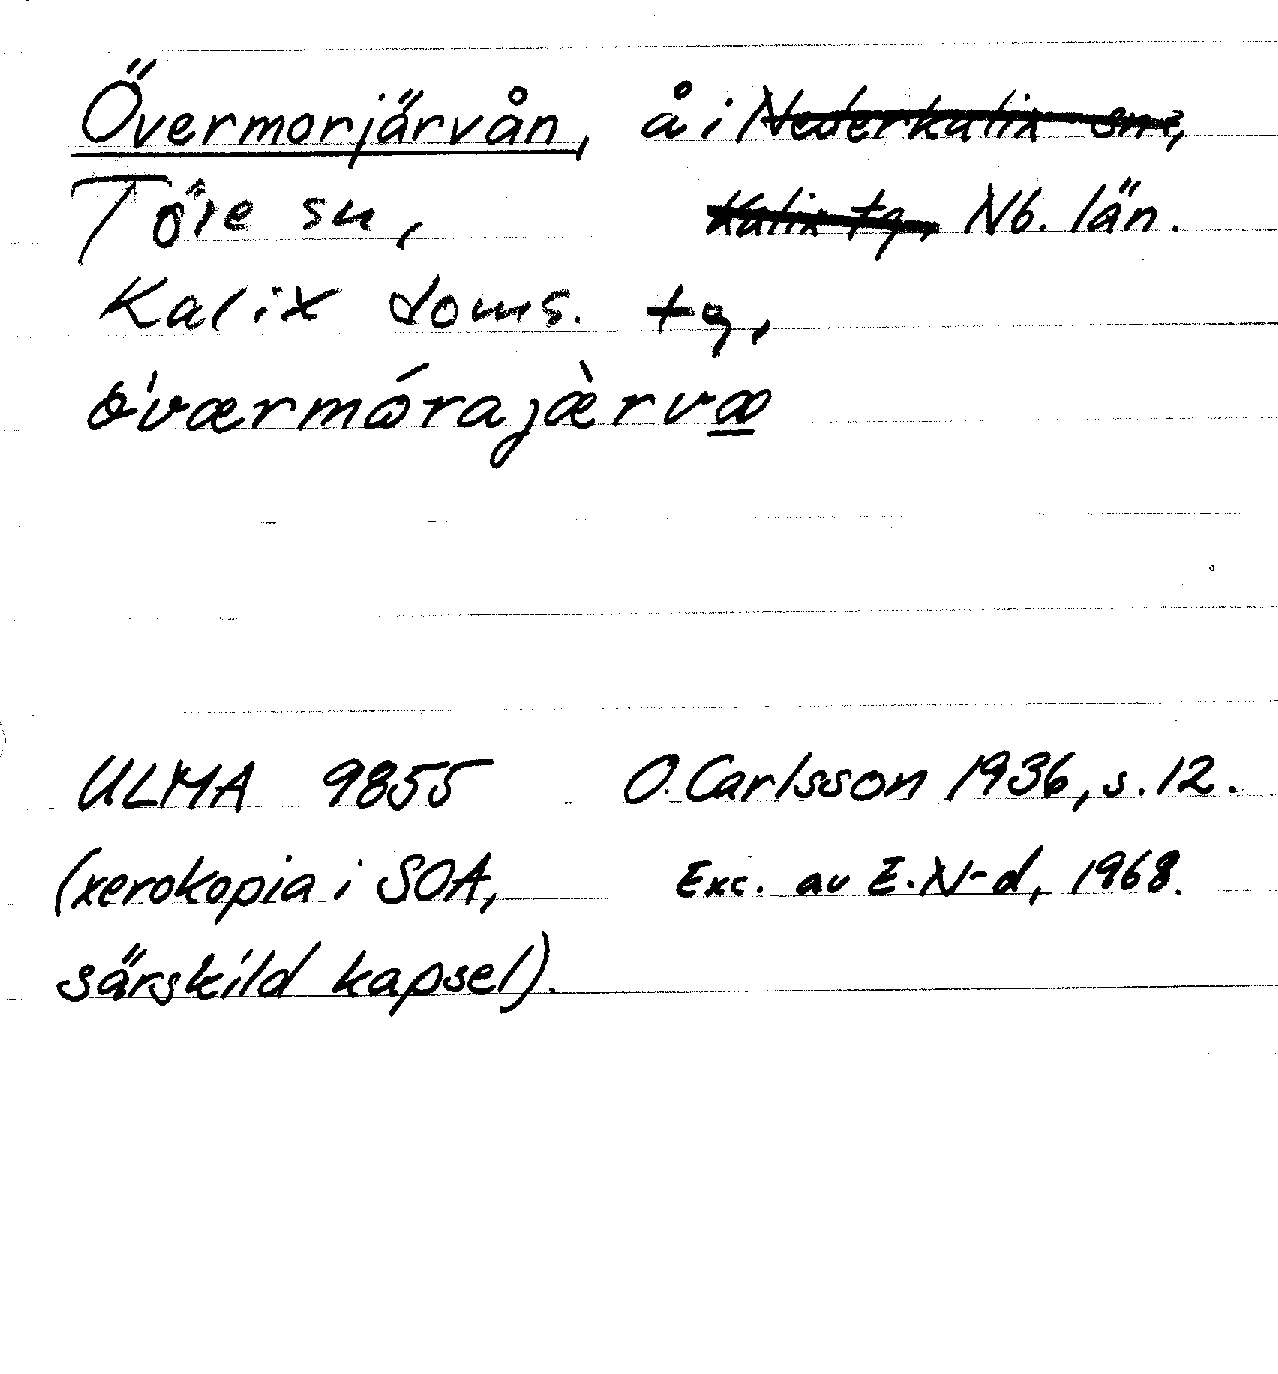 Övermorjärvån, å i Nederkalix sn,
Töre sn, Kalix tg, Nb. län.
Kalix doms. tg,
ö'værmǿrajæ̀rvæ
ULMA 9855 O. Carlsson 1936, s. 12.
(xerokopia i SOA, Exc. av E. N-d, 1968.
särskild kapsel).